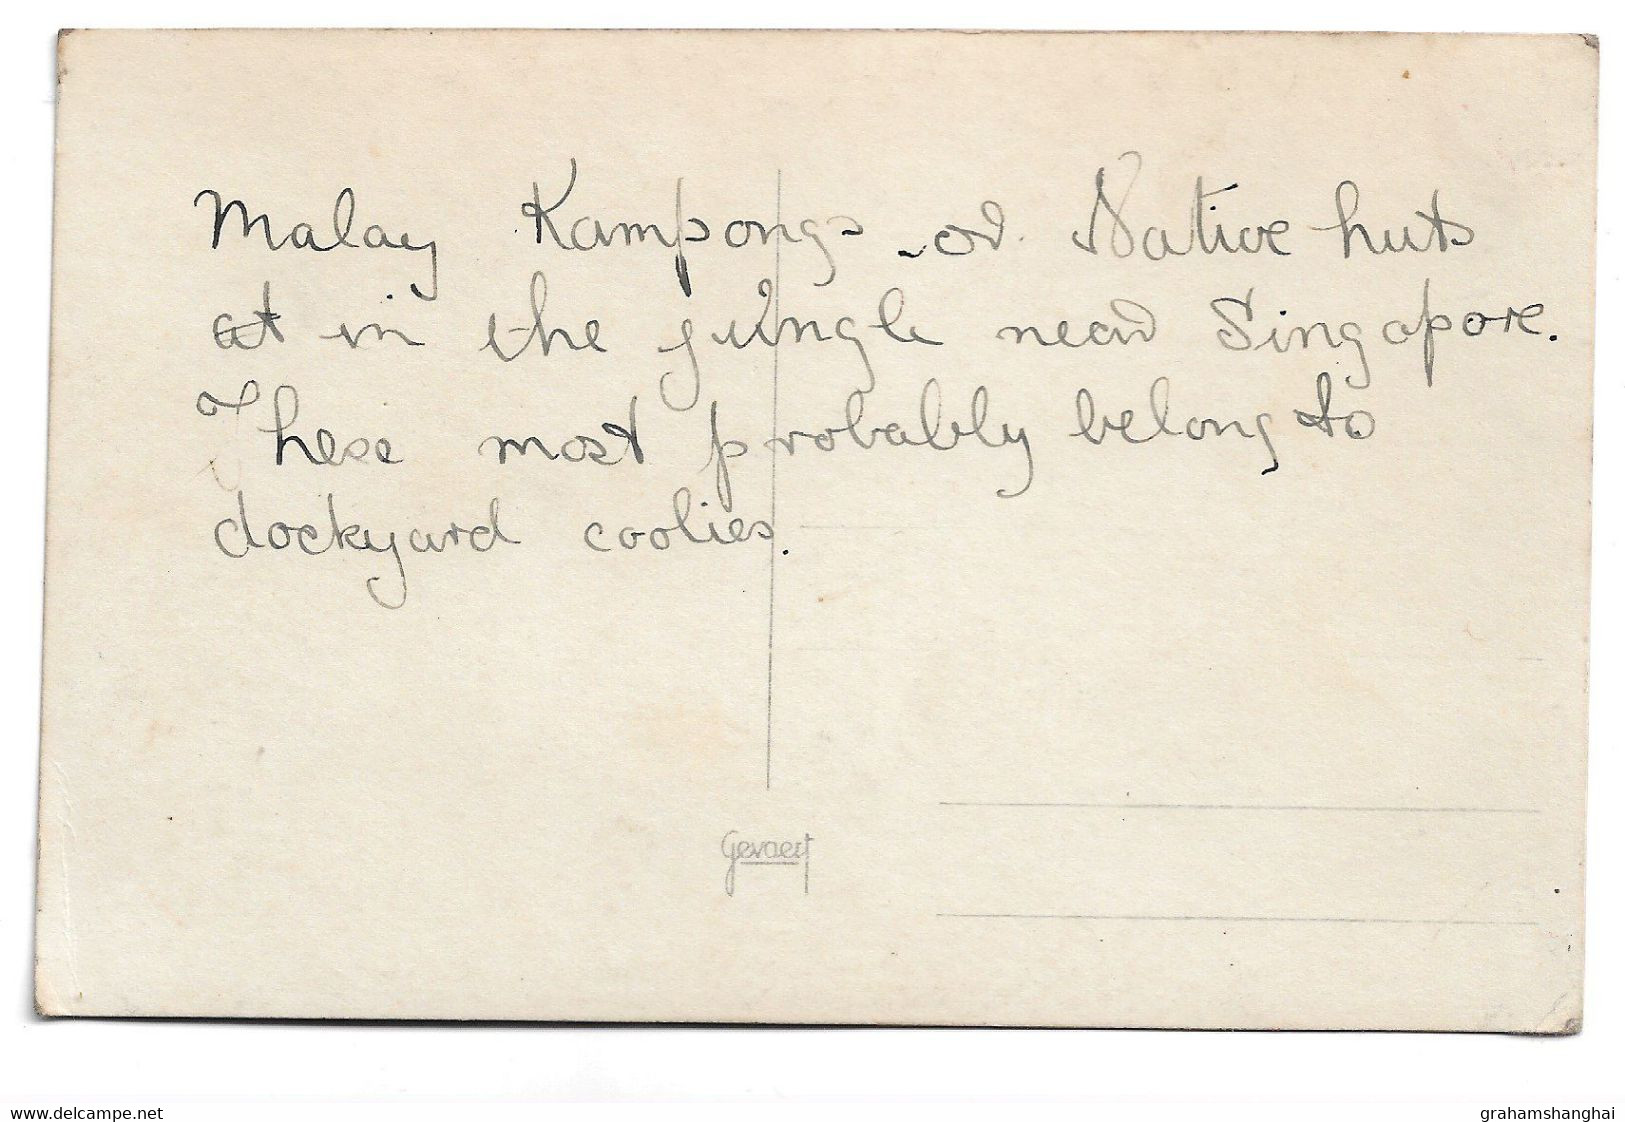 Malay Kampongs or Native huts
at in the jungle near Singapore.
These most probably belong to
dockyard coolies.
Gevaert
www.delcampe.net
grahamshanghai